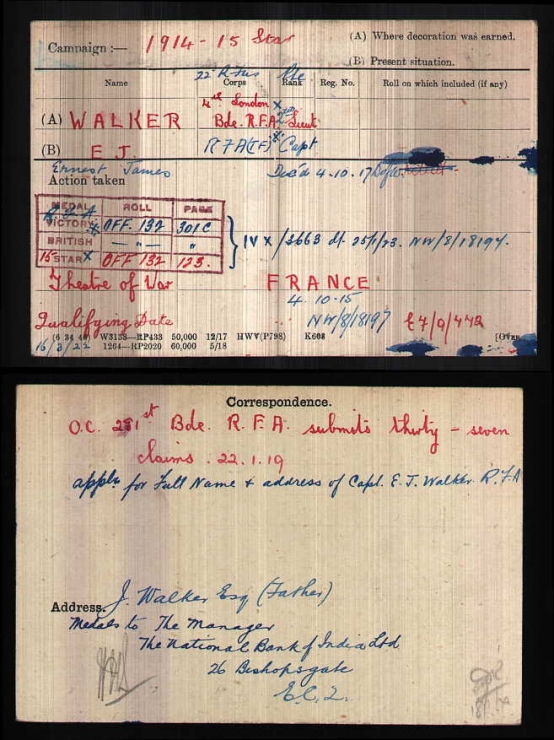 Campaign :— 1914-15 Star
(A) Where decoration was earned.
(B) Present situation.
22 R Fus Pte
Name Corps Rank Reg. No. Roll on which included (if any)
(A) WALKER 4th London Bde. R.F.A. Lieut
(B) E J. RFA(TF) Capt
Ernest James Dec'd 4.10.17
Action taken
MEDAL ROLL PAGE
VICTORY OFF. 132 301C
BRITISH — " — "
15 STAR X OFF 132 123.
IV X /3663 dt. 25/1/23. NW/8/18197.
Theatre of War FRANCE
4.10.15
Qualifying Date NW/8/18197
16/3/22 (6 34 46) W3138—RP433 50,000 12/17 HWV(P798) K608 [OVER
1264—RP2020 60,000 5/18
Correspondence.
O.C. 281st Bde. R.F.A. submits thirty-seven
claims. 22.1.19
appln for Full Name & address of Capt. E. J. Walker. R.F.A
Address. J. Walker Esq (Father)
Medals to The Manager
The National Bank of India Ltd
26 Bishopsgate
E.C.2.